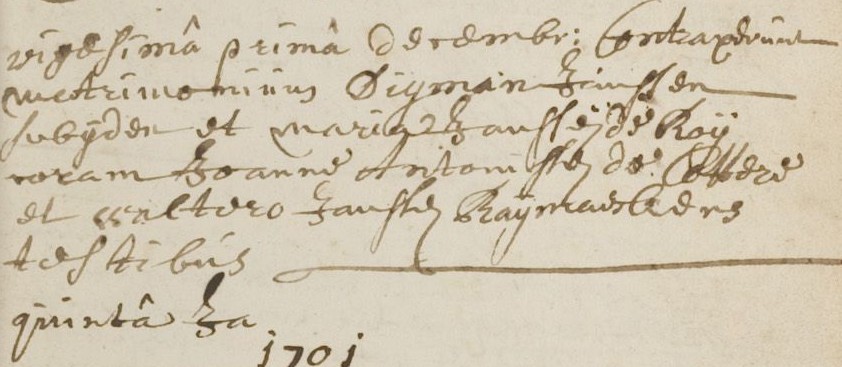 vigesimâ primâ decembr: Contraxerunt
matrimonium Sijmon Janssen
et Maria Janssen de Roij
coram Joanne Antonissen de
et waltero Janssen Raijmaeckers
testibus
quintâ Ja
1701